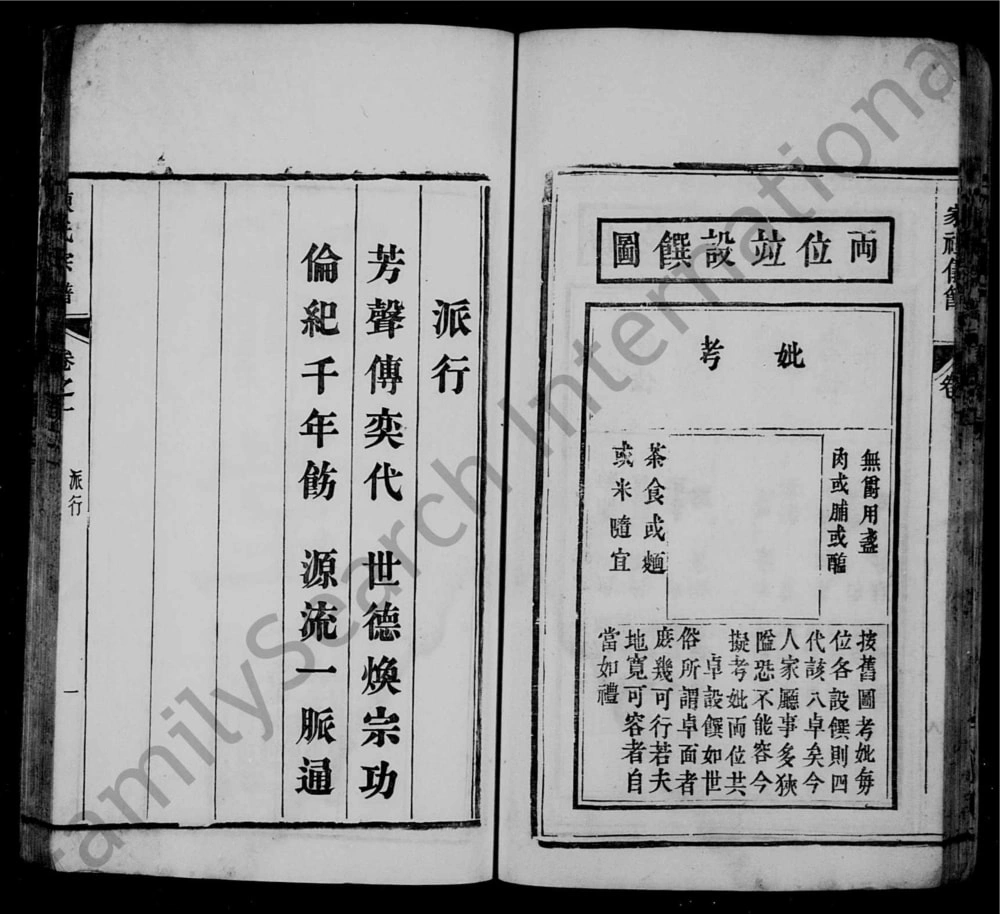 家禮儀節
卷
両位竝設饌圖
妣
考
無爵用盞
肉或脯或醢
茶食或麵
或米隨宜
按舊圖考妣每
位各設饌則四
代該八卓矣今
人家廳事多狹
隘恐不能容今
擬考妣両位共
一卓設饌如世
俗所謂卓面者
庻幾可行若夫
地寛可容者自
當如禮
派行
芳聲傳奕代 世德煥宗功
倫紀千年飭 源流一脈通
氏宗譜
卷之一
派行
一
FamilySearch International